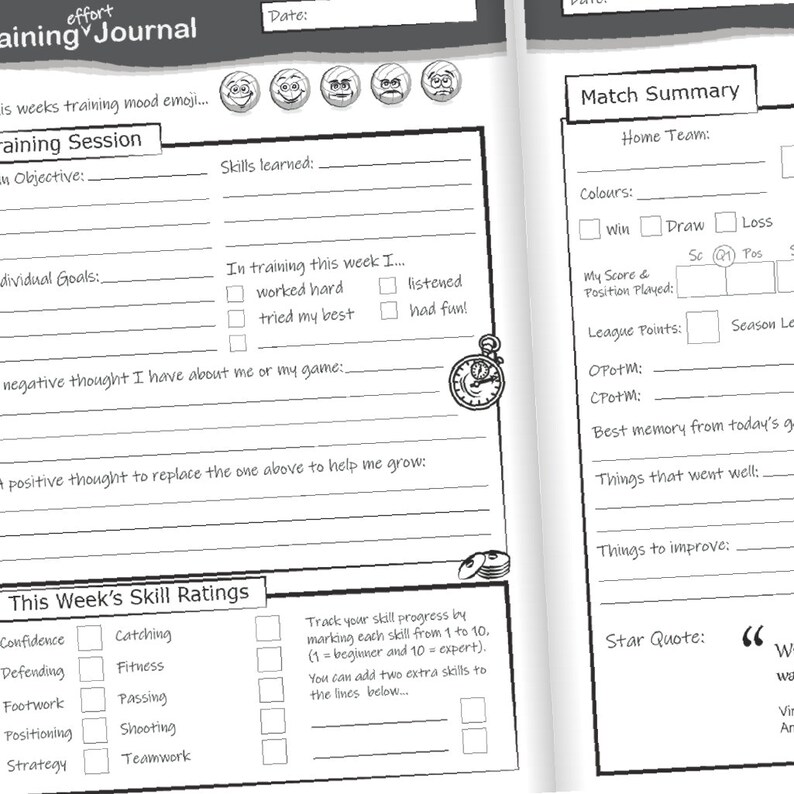 effort
aining Journal
Date:
is weeks training mood emoji...
raining Session
n Objective:
Skills learned:
dividual Goals:
In training this week I...
worked hard
listened
tried my best
had fun!
negative thought I have about me or my game:
A positive thought to replace the one above to help me grow:
This Week's Skill Ratings
Confidence
Catching
Defending
Fitness
Footwork
Passing
Positioning
Shooting
Strategy
Teamwork
Track your skill progress by
marking each skill from 1 to 10,
(1 = beginner and 10 = expert).
You can add two extra skills to
the lines below...
Date:
Match Summary
Home Team:
Colours:
Win Draw Loss
Sc Q1 Pos S
My Score &
Position Played:
League Points: Season Le
OPotM:
CPotM:
Best memory from today's g
Things that went well:
Things to improve:
Star Quote: “
W
wa
Vi
An